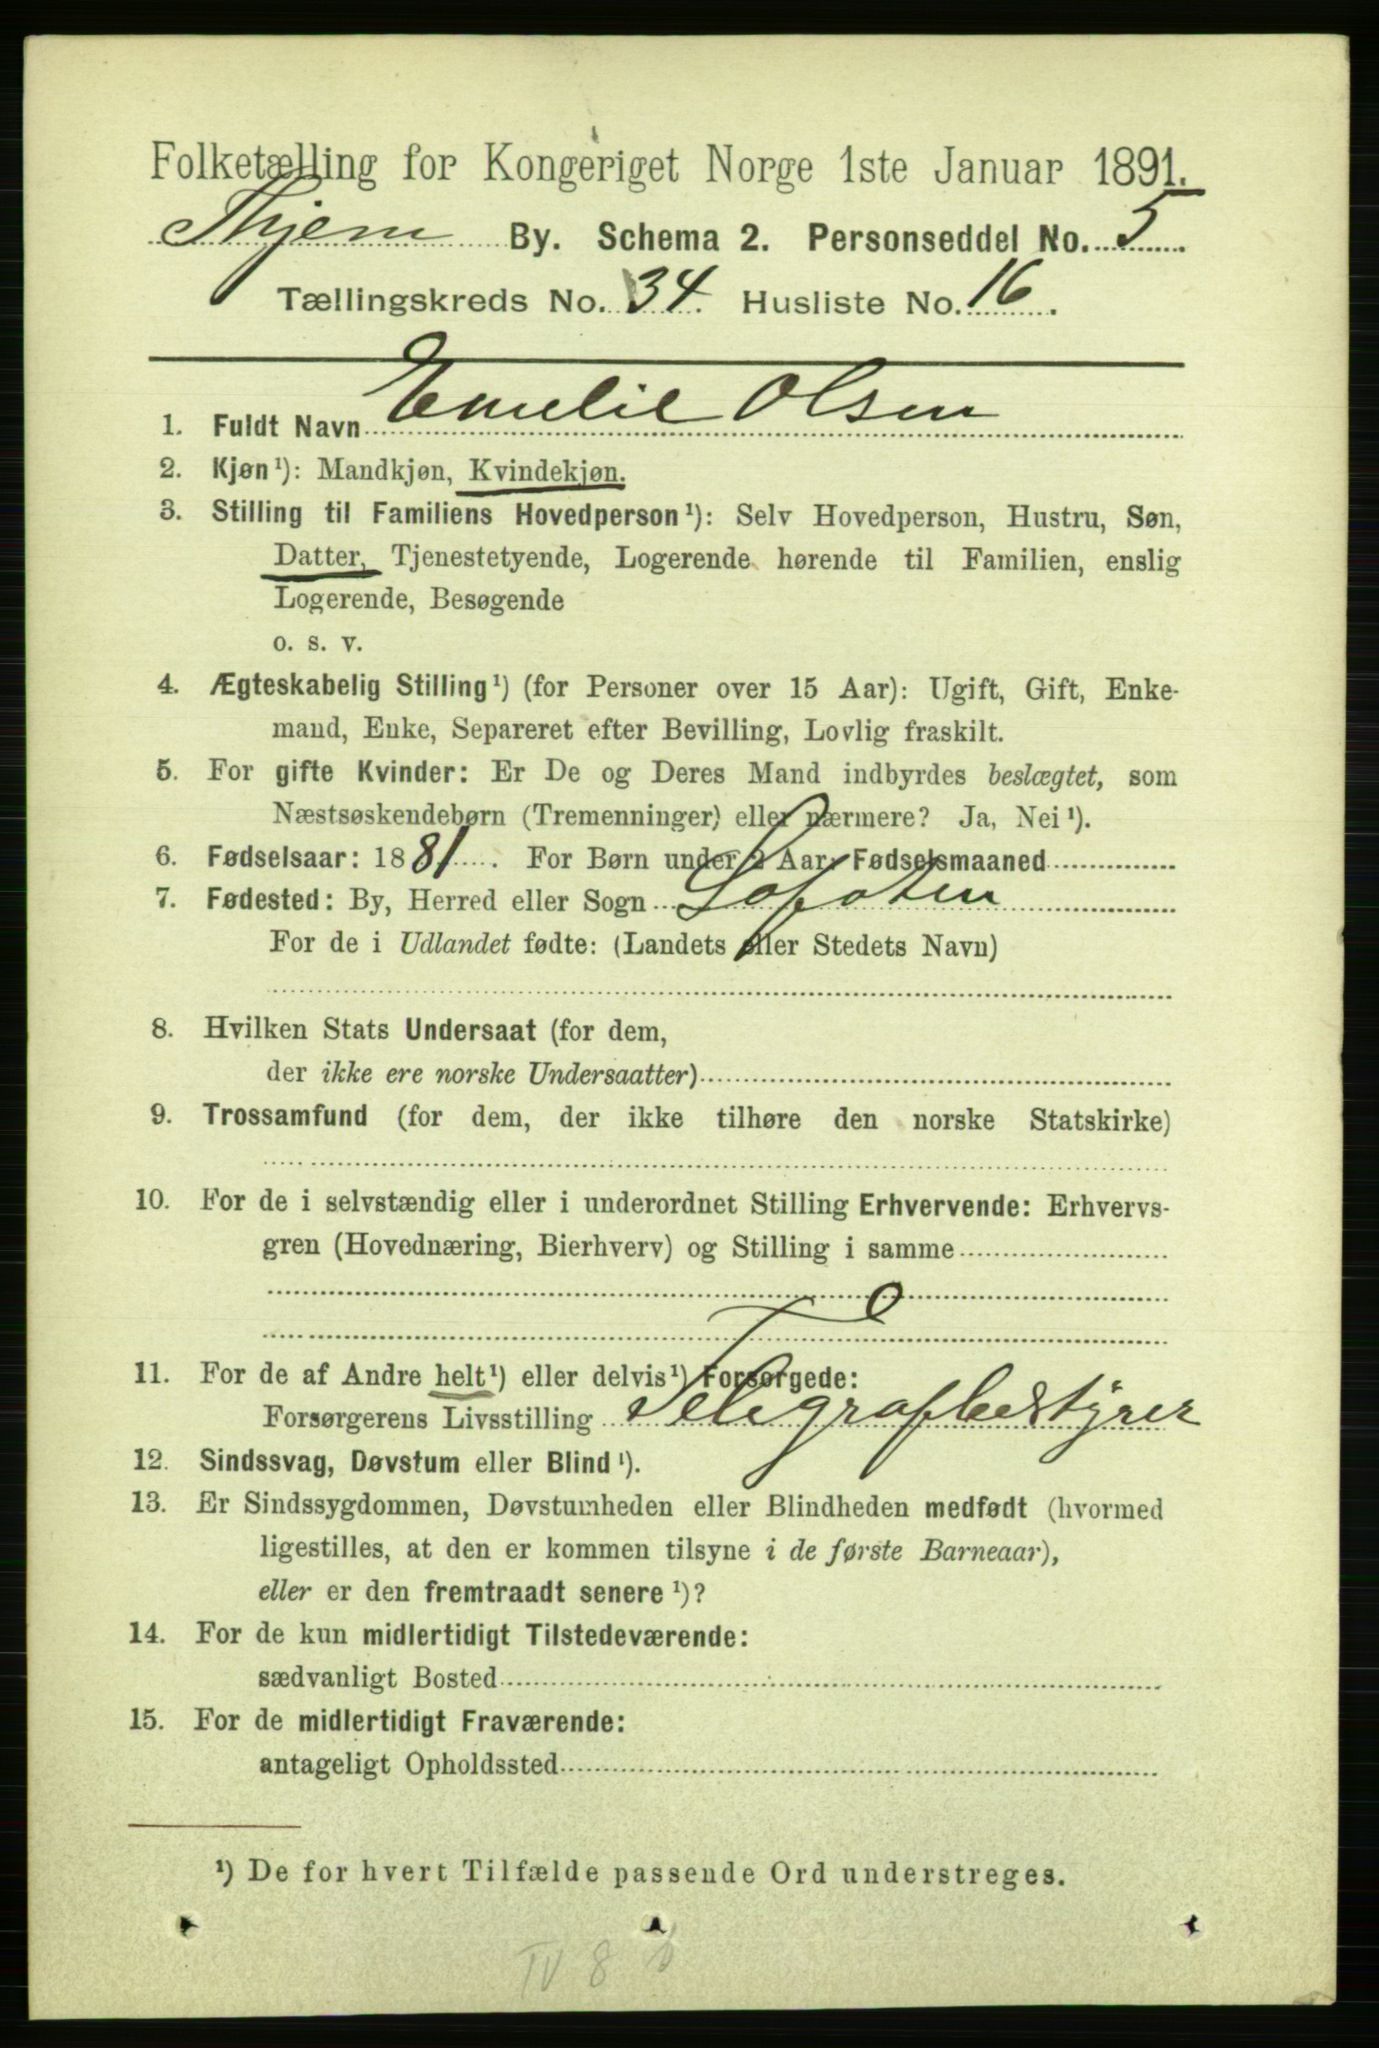 Folketælling for Kongeriget Norge 1ste Januar 1891.
Thjem By. Schema 2. Personseddel No. 5
Tællingskreds No. 34. Husliste No. 16.
1. Fuldt Navn Emelie Olsen
2. Kjøn¹): Mandkjøn, Kvindekjøn.
3. Stilling til Familiens Hovedperson¹): Selv Hovedperson, Hustru, Søn,
Datter, Tjenestetyende, Logerende hørende til Familien, enslig
Logerende, Besøgende
o. s. v.
4. Ægteskabelig Stilling¹) (for Personer over 15 Aar): Ugift, Gift, Enke-
mand, Enke, Separeret efter Bevilling, Lovlig fraskilt.
5. For gifte Kvinder: Er De og Deres Mand indbyrdes beslægtet, som
Næstsøskendebørn (Tremenninger) eller nærmere? Ja, Nei¹).
6. Fødselsaar: 1881. For Børn under 2 Aar, Fødselsmaaned
7. Fødested: By, Herred eller Sogn Lofoten
For de i Udlandet fødte: (Landets eller Stedets Navn)
8. Hvilken Stats Undersaat (for dem,
der ikke ere norske Undersaatter)
9. Trossamfund (for dem, der ikke tilhøre den norske Statskirke)
10. For de i selvstændig eller i underordnet Stilling Erhvervende: Erhvervs-
gren (Hovednæring, Bierhverv) og Stilling i samme
11. For de af Andre helt¹) eller delvis¹) Forsørgede:
Forsørgerens Livsstilling Telegrafbestyrer
12. Sindssvag, Døvstum eller Blind¹).
13. Er Sindssygdommen, Døvstumheden eller Blindheden medfødt (hvormed
ligestilles, at den er kommen tilsyne i de første Barneaar),
eller er den fremtraadt senere¹)?
14. For de kun midlertidigt Tilstedeværende:
sædvanligt Bosted
15. For de midlertidigt Fraværende:
antageligt Opholdssted
¹) De for hvert Tilfælde passende Ord understreges.
IV 8 b